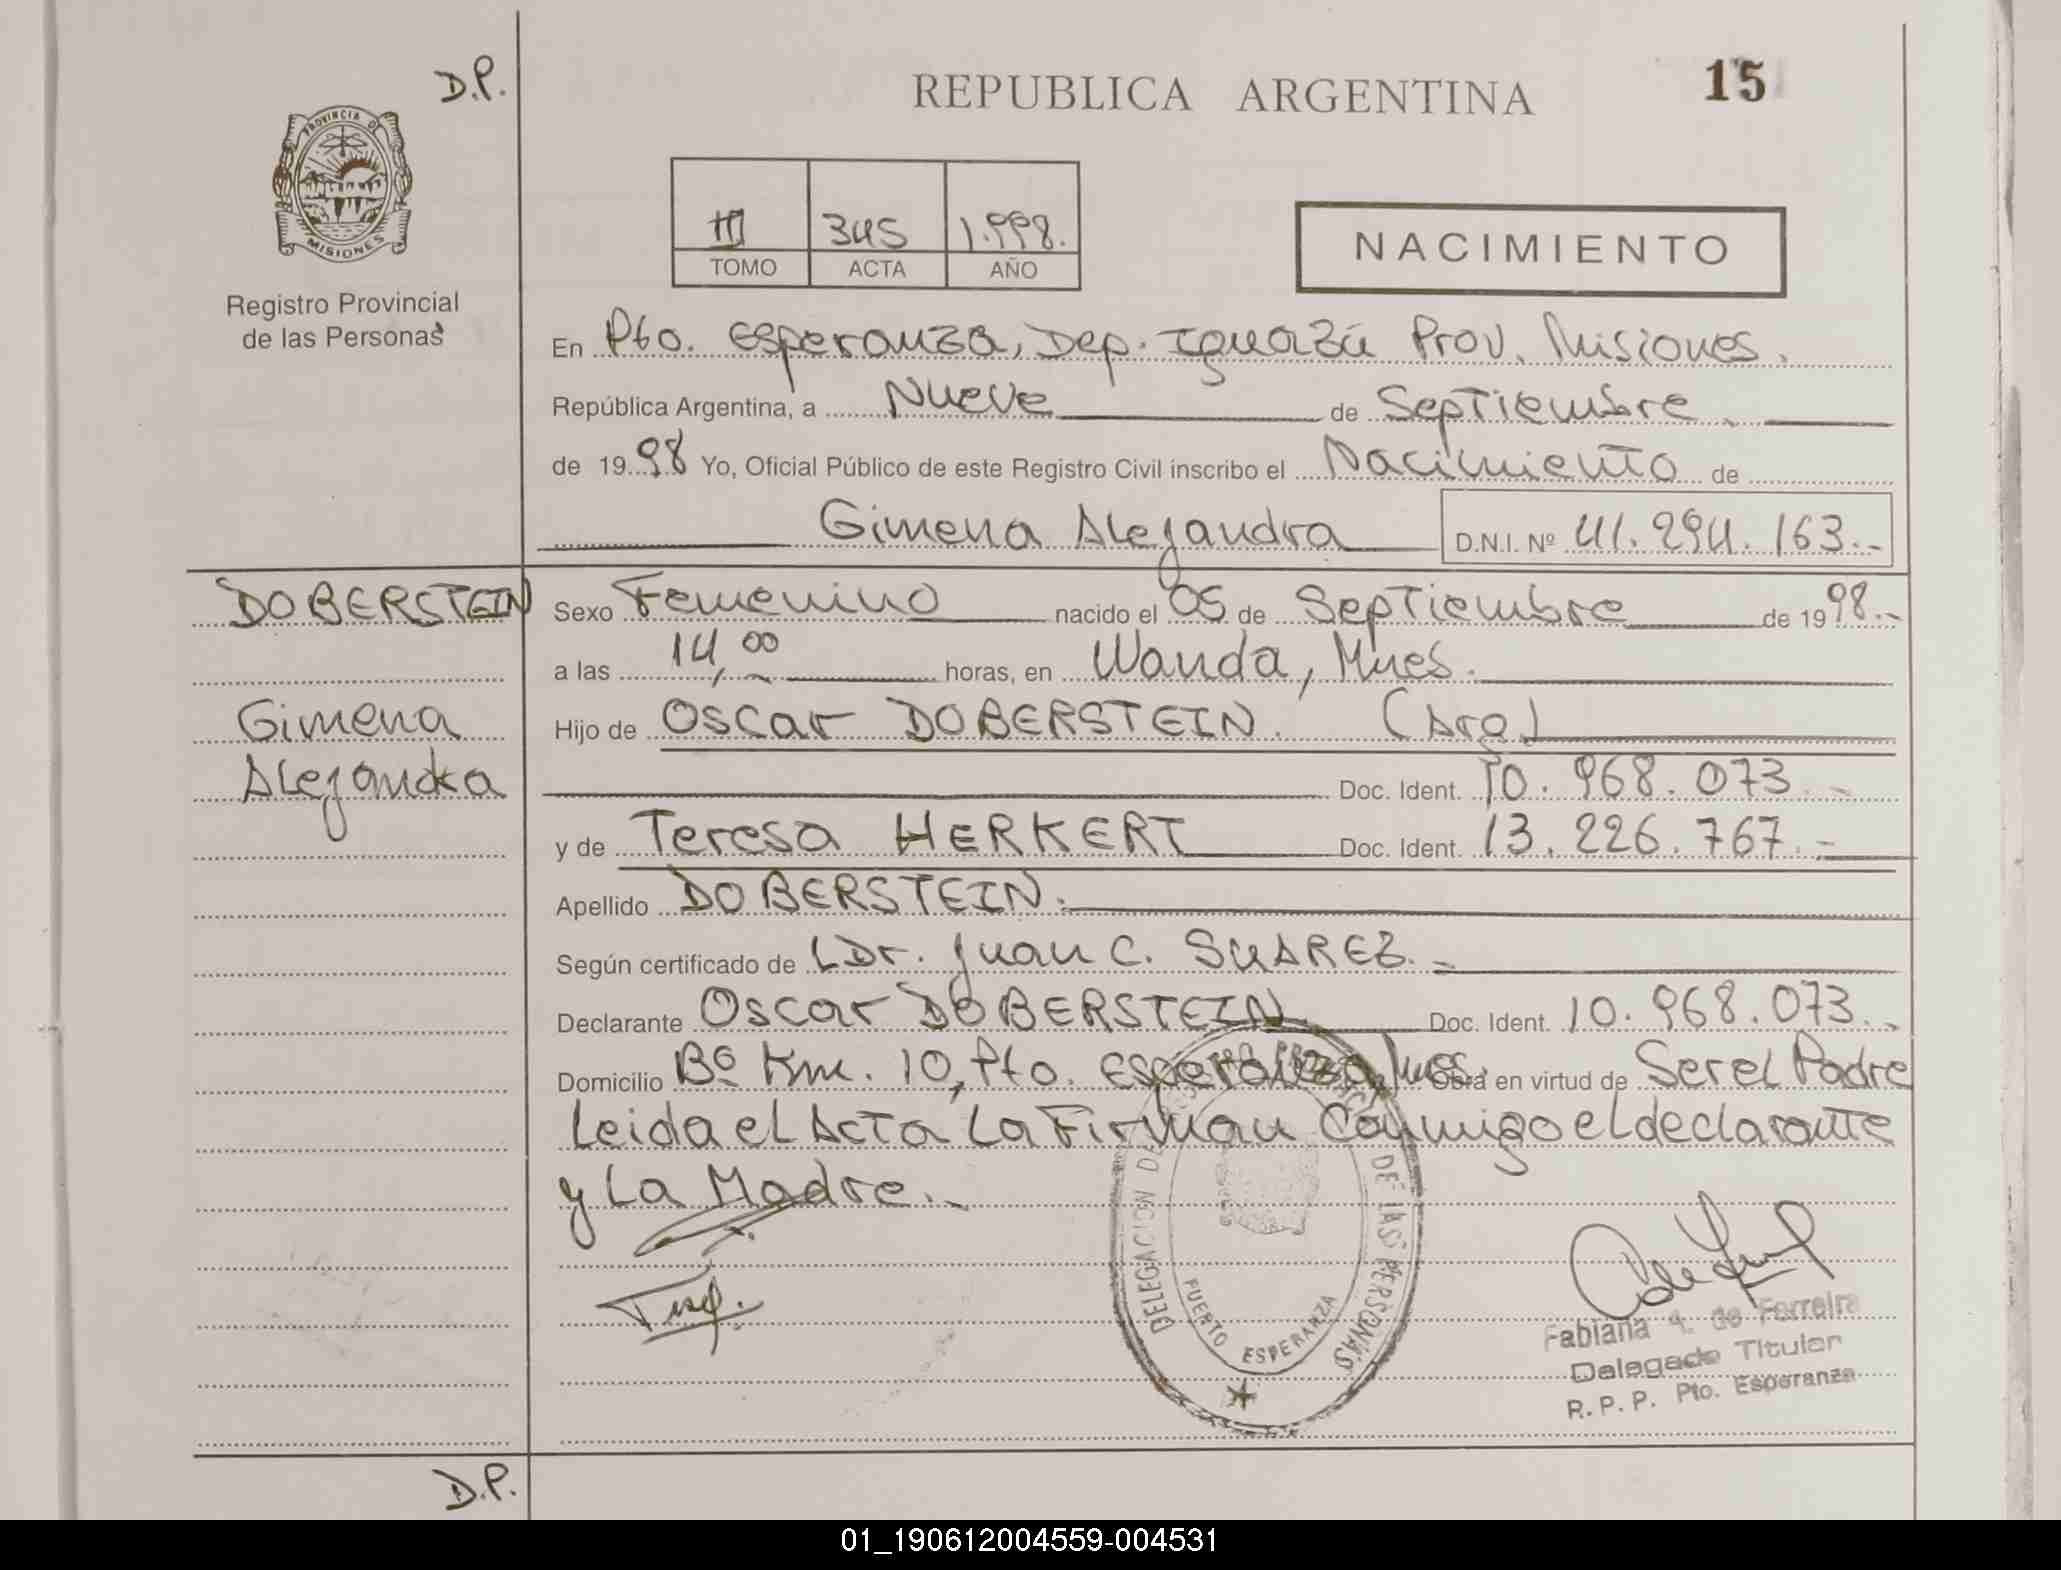 D.P.
REPUBLICA ARGENTINA
15
PROVINCIA DE
MISIONES
Registro Provincial
de las Personas
III 345 1.998.
TOMO ACTA AÑO
NACIMIENTO
En Pto. Esperanza, Dep. Iguazú Prov. Misiones.
República Argentina, a Nueve de Septiembre
de 1998 Yo, Oficial Público de este Registro Civil inscribo el Nacimiento de
Gimena Alejandra D.N.I. Nº 41.294.163.-
DOBERSTEIN
Gimena
Alejandra
Sexo Femenino nacido el 05 de Septiembre de 1998.-
a las 14,00 horas, en Wanda, Mnes.
Hijo de Oscar DOBERSTEIN. (Arg)
Doc. Ident. 10.968.073.-
y de Teresa HERKERT Doc. Ident. 13.226.767.-
Apellido DOBERSTEIN.
Según certificado de Dr. Juan C. SUAREZ.-
Declarante Oscar DOBERSTEIN Doc. Ident. 10.968.073.-
Domicilio Bº Km. 10, Pto. Esperanza, Mnes. Obra en virtud de Ser el Padre
Leida el Acta La Firman Conmigo el declarante
y La Madre.-
DELEGACION DE DE LAS PERSONAS
PUERTO ESPERANZA
Fabiana A. de Ferreira
Delegado Titular
R.P.P. Pto. Esperanza
D.P.
01_190612004559-004531